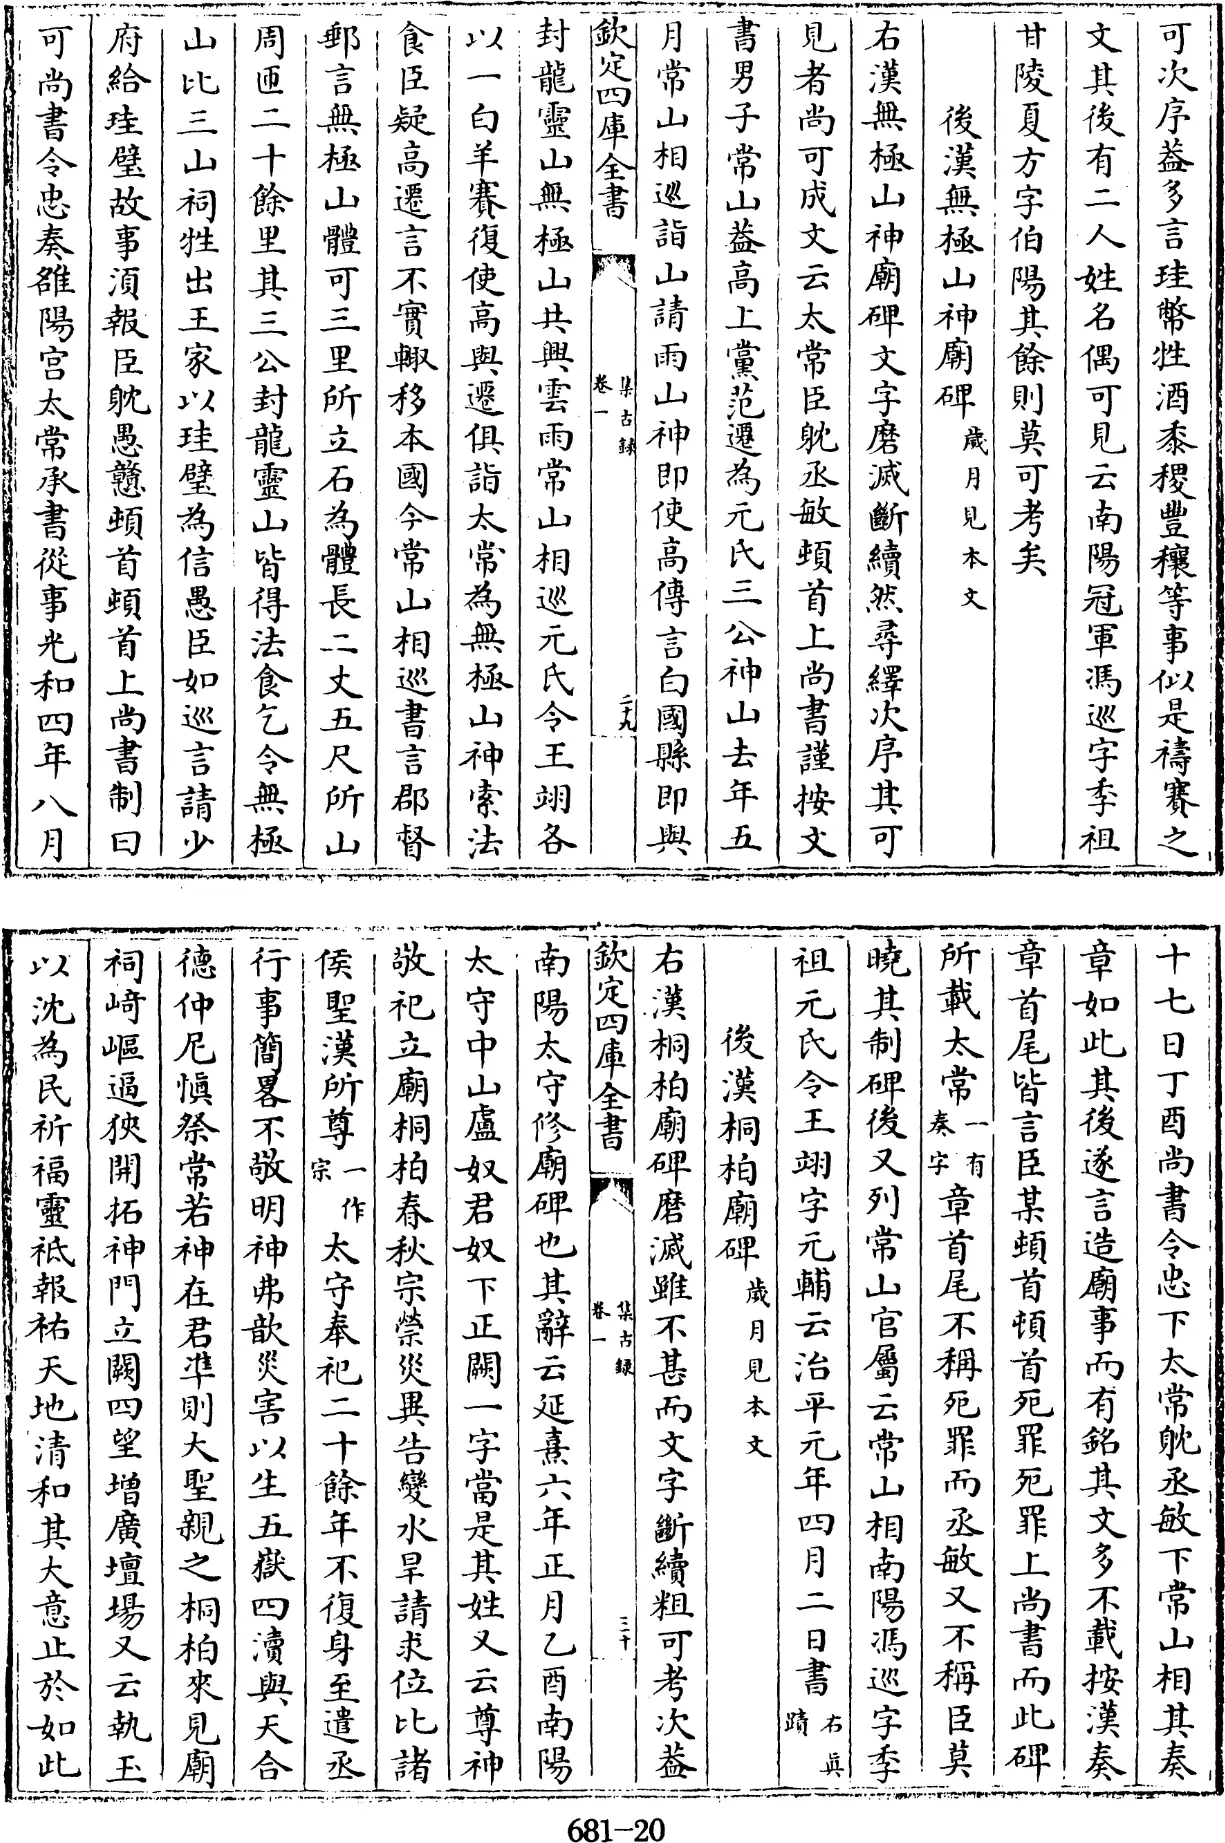 可次序葢多言珪幣牲酒黍稷豐穰等事似是禱賽之
文其後有二人姓名偶可見云南陽冠軍馮巡字季祖
甘陵夏方字伯陽其餘則莫可考矣
後漢無極山神廟碑歲月見本文
右漢無極山神廟碑文字磨滅斷續然尋繹次序其可
見者尚可成文云太常臣躭丞敏頓首上尚書謹按文
書男子常山葢高上黨范遷為元氏三公神山去年五
月常山相巡詣山請雨山神即使高傳言白國縣即與
欽定四庫全書
集古録
卷一
二十九
封龍靈山無極山共興雲雨常山相巡元氏令王翊各
以一白羊賽復使高與遷俱詣太常為無極山神索法
食臣疑高遷言不實輙移本國今常山相巡書言郡督
郵言無極山體可三里所立石為體長二丈五尺所山
周匝二十餘里其三公封龍靈山皆得法食乞令無極
山比三山祠牲出王家以珪璧為信愚臣如巡言請少
府給珪璧故事湏報臣躭愚戇頓首頓首上尚書制曰
可尚書令忠奏雒陽宫太常承書從事光和四年八月
十七日丁酉尚書令忠下太常躭丞敏下常山相其奏
章如此其後遂言造廟事而有銘其文多不載按漢奏
章首尾皆言臣某頓首頓首死罪死罪上尚書而此碑
所載太常一有奏字章首尾不稱死罪而丞敏又不稱臣莫
曉其制碑後又列常山官屬云常山相南陽馮巡字季
祖元氏令王翊字元輔云治平元年四月二日書右眞蹟
後漢桐柏廟碑歲月見本文
右漢桐柏廟碑磨滅雖不甚而文字斷續粗可考次葢
欽定四庫全書
集古録
卷一
三十
南陽太守修廟碑也其辭云延熹六年正月乙酉南陽
太守中山盧奴君奴下正闕一字當是其姓又云尊神
敬祀立廟桐柏春秋宗禜災異告變水旱請求位比諸
侯聖漢所尊一作宗太守奉祀二十餘年不復身至遣丞
行事簡畧不敬明神弗歆災害以生五嶽四瀆與天合
德仲尼愼祭常若神在君準則大聖親之桐柏來見廟
祠﨑嶇逼狹開拓神門立闕四望增廣壇場又云執玉
以沈為民祈福靈祗報祐天地清和其大意止於如此
681-20